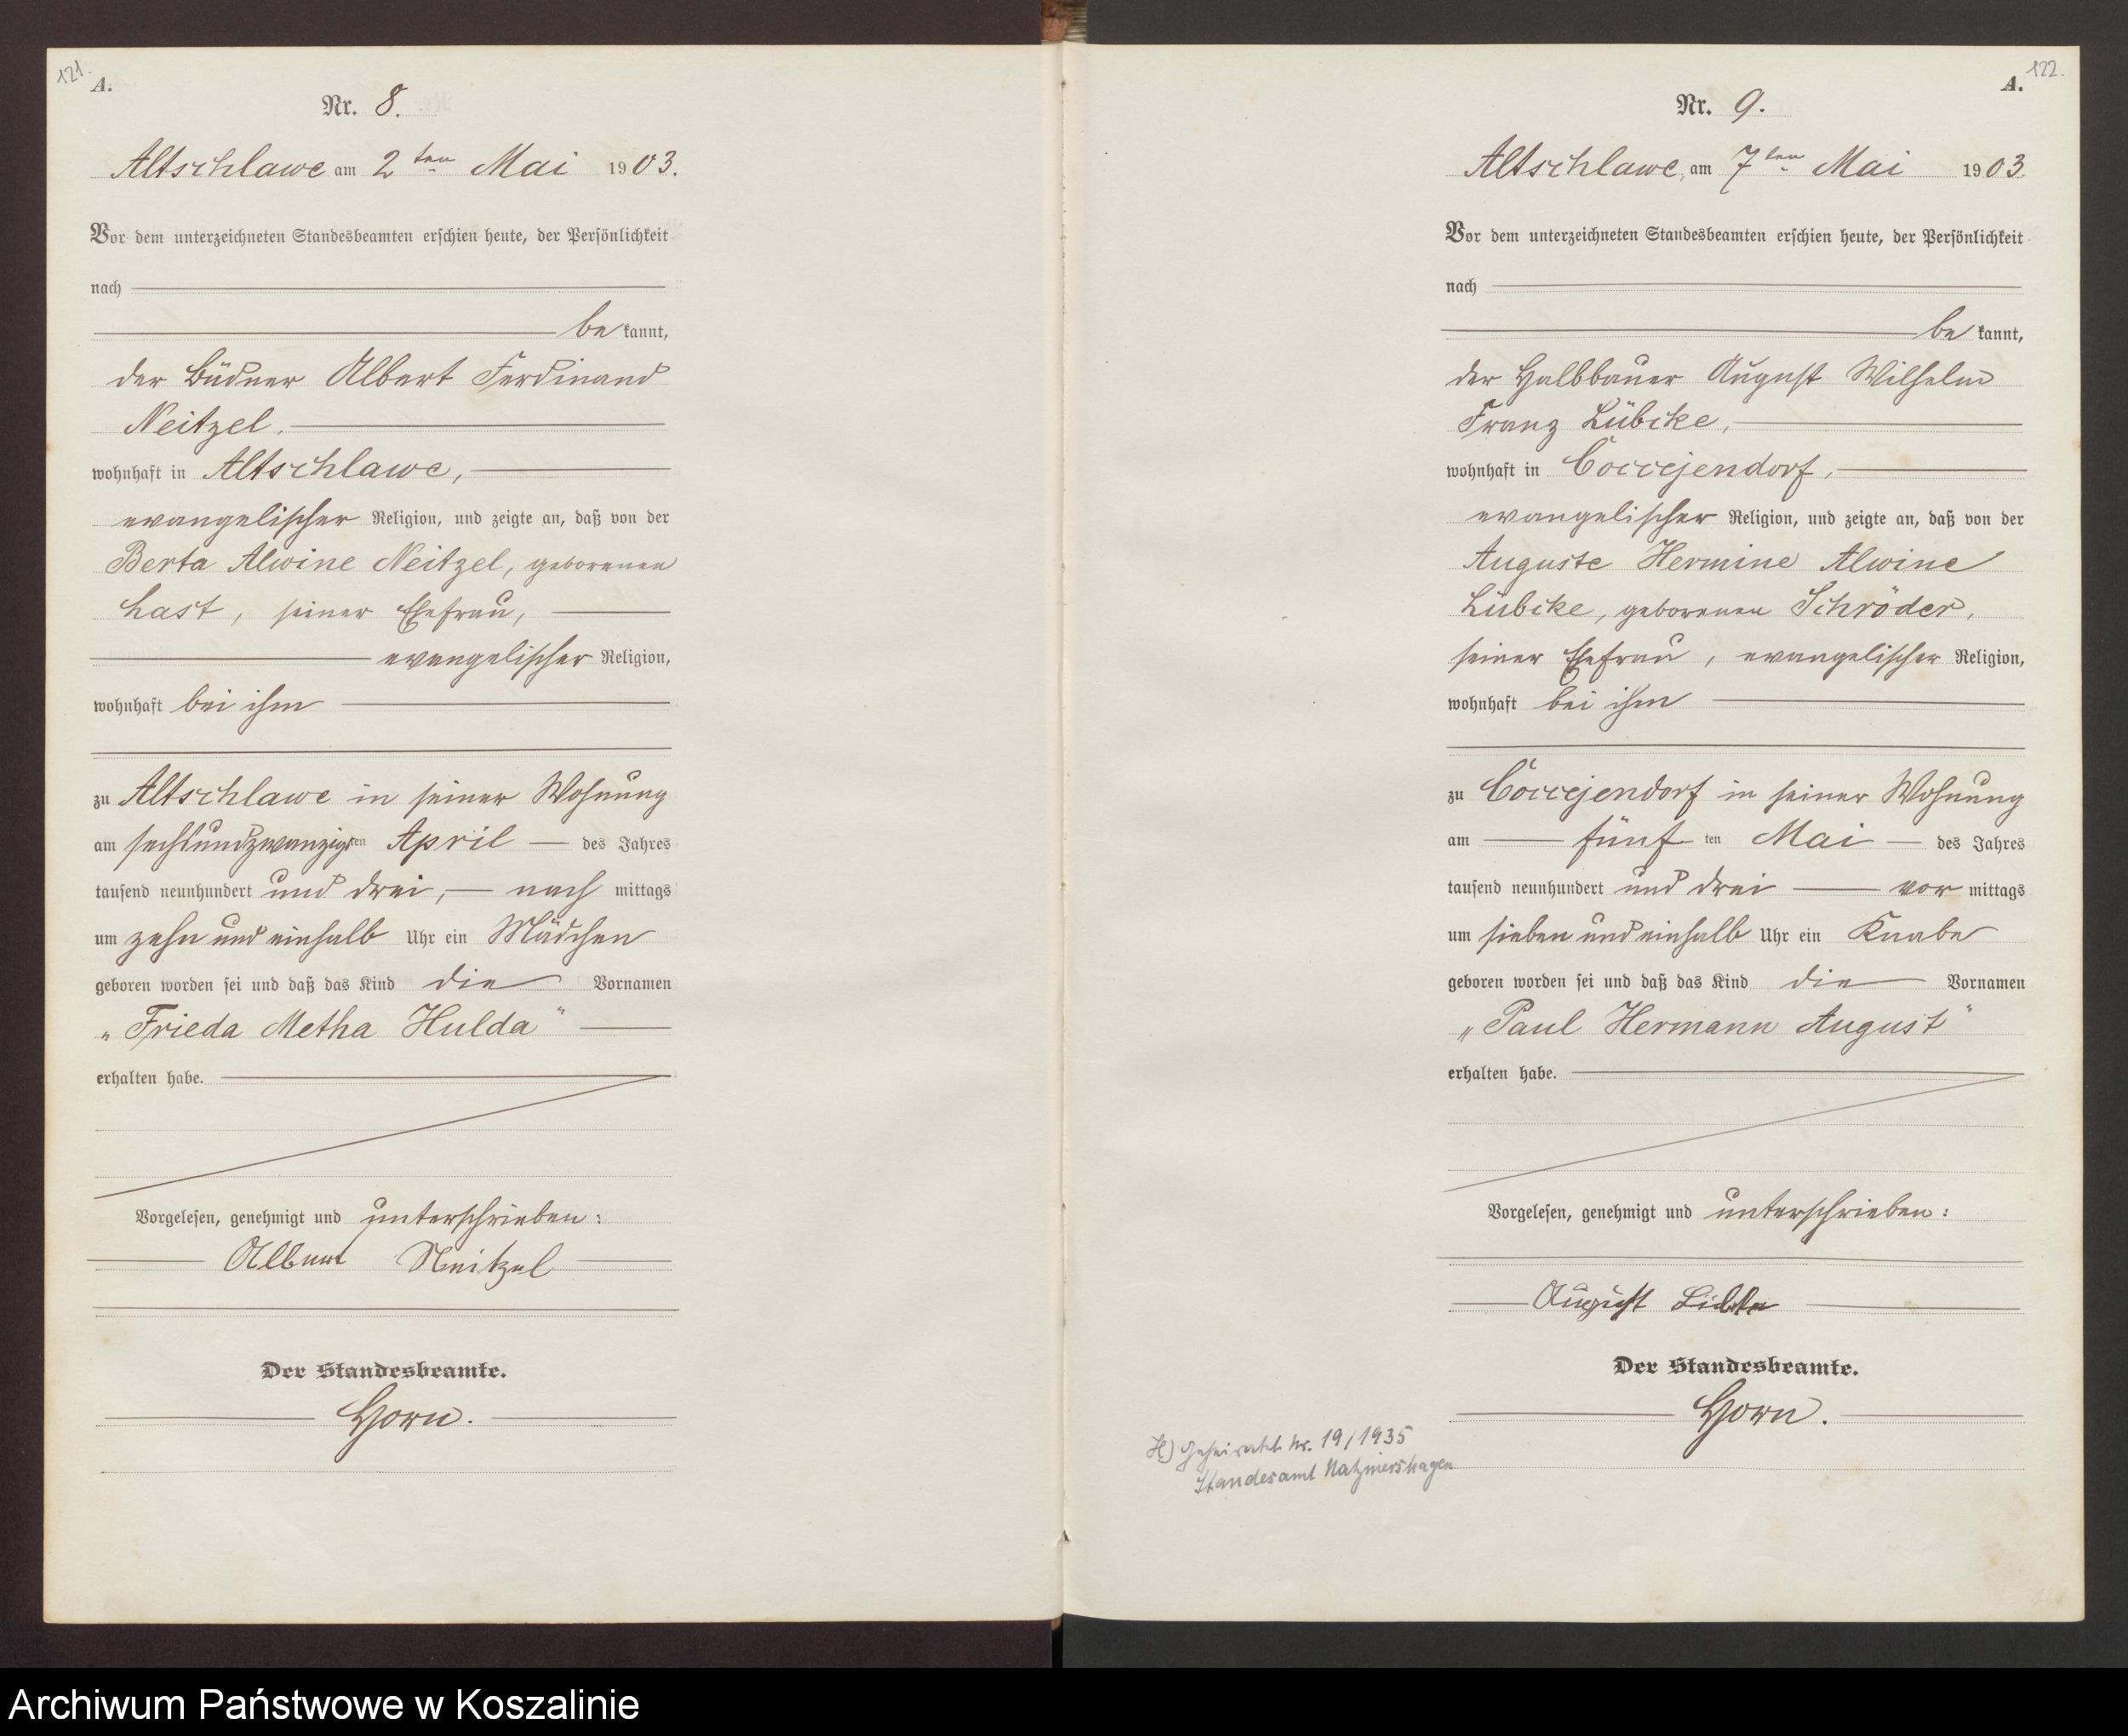 121.
A.
Nr. 8.
Altschlawe am 2ten Mai 1903.
Vor dem unterzeichneten Standesbeamten erschien heute, der Persönlichkeit
nach
be kannt,
der Büdner Albert Ferdinand
Neitzel,
wohnhaft in Altschlawe,
evangelischer Religion, und zeigte an, daß von der
Berta Alwine Neitzel, geborenen
Hast, seiner Ehefrau,
evangelischer Religion,
wohnhaft bei ihm
zu Altschlawe in seiner Wohnung
am sechsundzwanzigsten April des Jahres
tausend neunhundert und drei, nach mittags
um zehn und einhalb Uhr ein Mädchen
geboren worden sei und daß das Kind die Vornamen
„Frieda Metha Hulda"
erhalten habe.
Vorgelesen, genehmigt und unterschrieben:
Albert Neitzel
Der Standesbeamte.
Horn.
122.
A.
Nr. 9.
Altschlawe, am 7ten Mai 1903.
Vor dem unterzeichneten Standesbeamten erschien heute, der Persönlichkeit
nach
be kannt,
der Halbbauer August Wilhelm
Franz Lübcke,
wohnhaft in Coccejendorf,
evangelischer Religion, und zeigte an, daß von der
Auguste Hermine Alwine
Lübcke, geborenen Schröder,
seiner Ehefrau, evangelischer Religion,
wohnhaft bei ihm
zu Coccejendorf in seiner Wohnung
am fünf ten Mai des Jahres
tausend neunhundert und drei vor mittags
um sieben und einhalb Uhr ein Knabe
geboren worden sei und daß das Kind die Vornamen
„Paul Hermann August"
erhalten habe.
Vorgelesen, genehmigt und unterschrieben:
August Lübke
Der Standesbeamte.
Horn.
H) Geheiratet Nr. 19/1935
Standesamt Natzmershagen
Archiwum Państwowe w Koszalinie